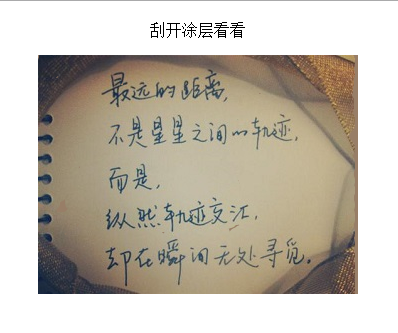 刮开涂层看看
最远的距离,
不是星星之间的轨迹,
而是,
纵然轨迹交汇,
却在瞬间无处寻觅。